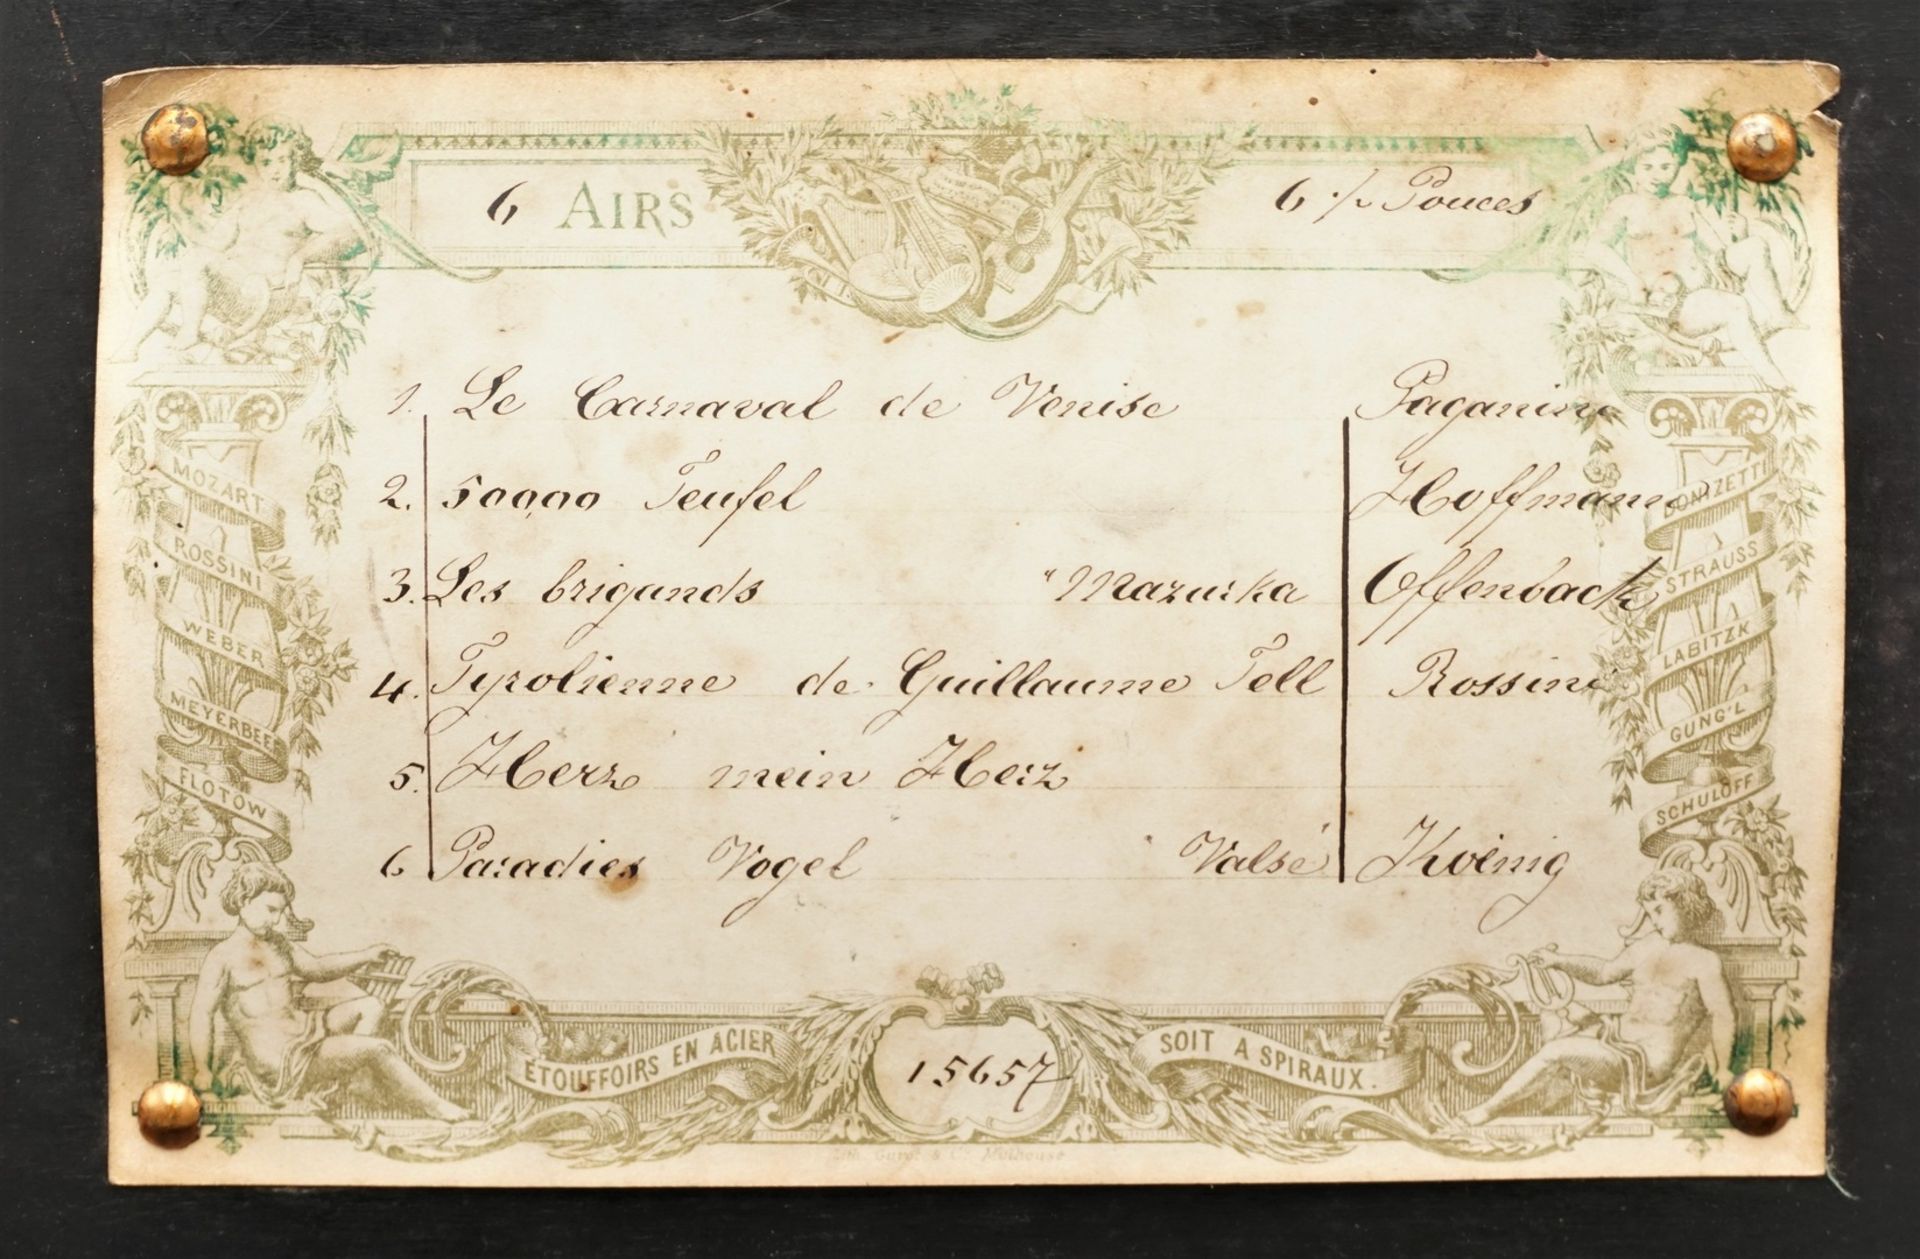 6 AIRS 6 ½ Pouces
1. Le Carnaval de Venise Paganini
2. 50000 Teufel Hoffmann
3. Les brigands " Mazurka Offenbach
4. Tyrolienne de Guillaume Tell Rossini
5. Herz mein Herz
6 Paradies Vogel Valse Koenig
MOZART
ROSSINI
WEBER
MEYERBEE
FLOTOW
DONIZETTI
STRAUSS
LABITZK
GUNG'L
SCHULOFF
ÉTOUFFOIRS EN ACIER
15657
SOIT A SPIRAUX.
Lith. & Cie Mulhouse